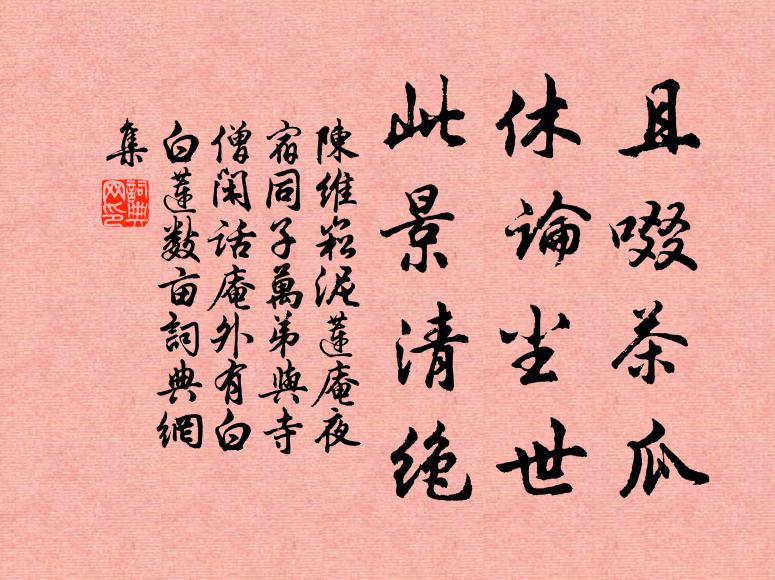 且啜茶瓜
休論尘世
此景清绝
陳維崧泥蓮庵夜
宿同子萬弟與寺
僧閑話庵外有白
白蓮数亩詞典網
集
詞典
网印